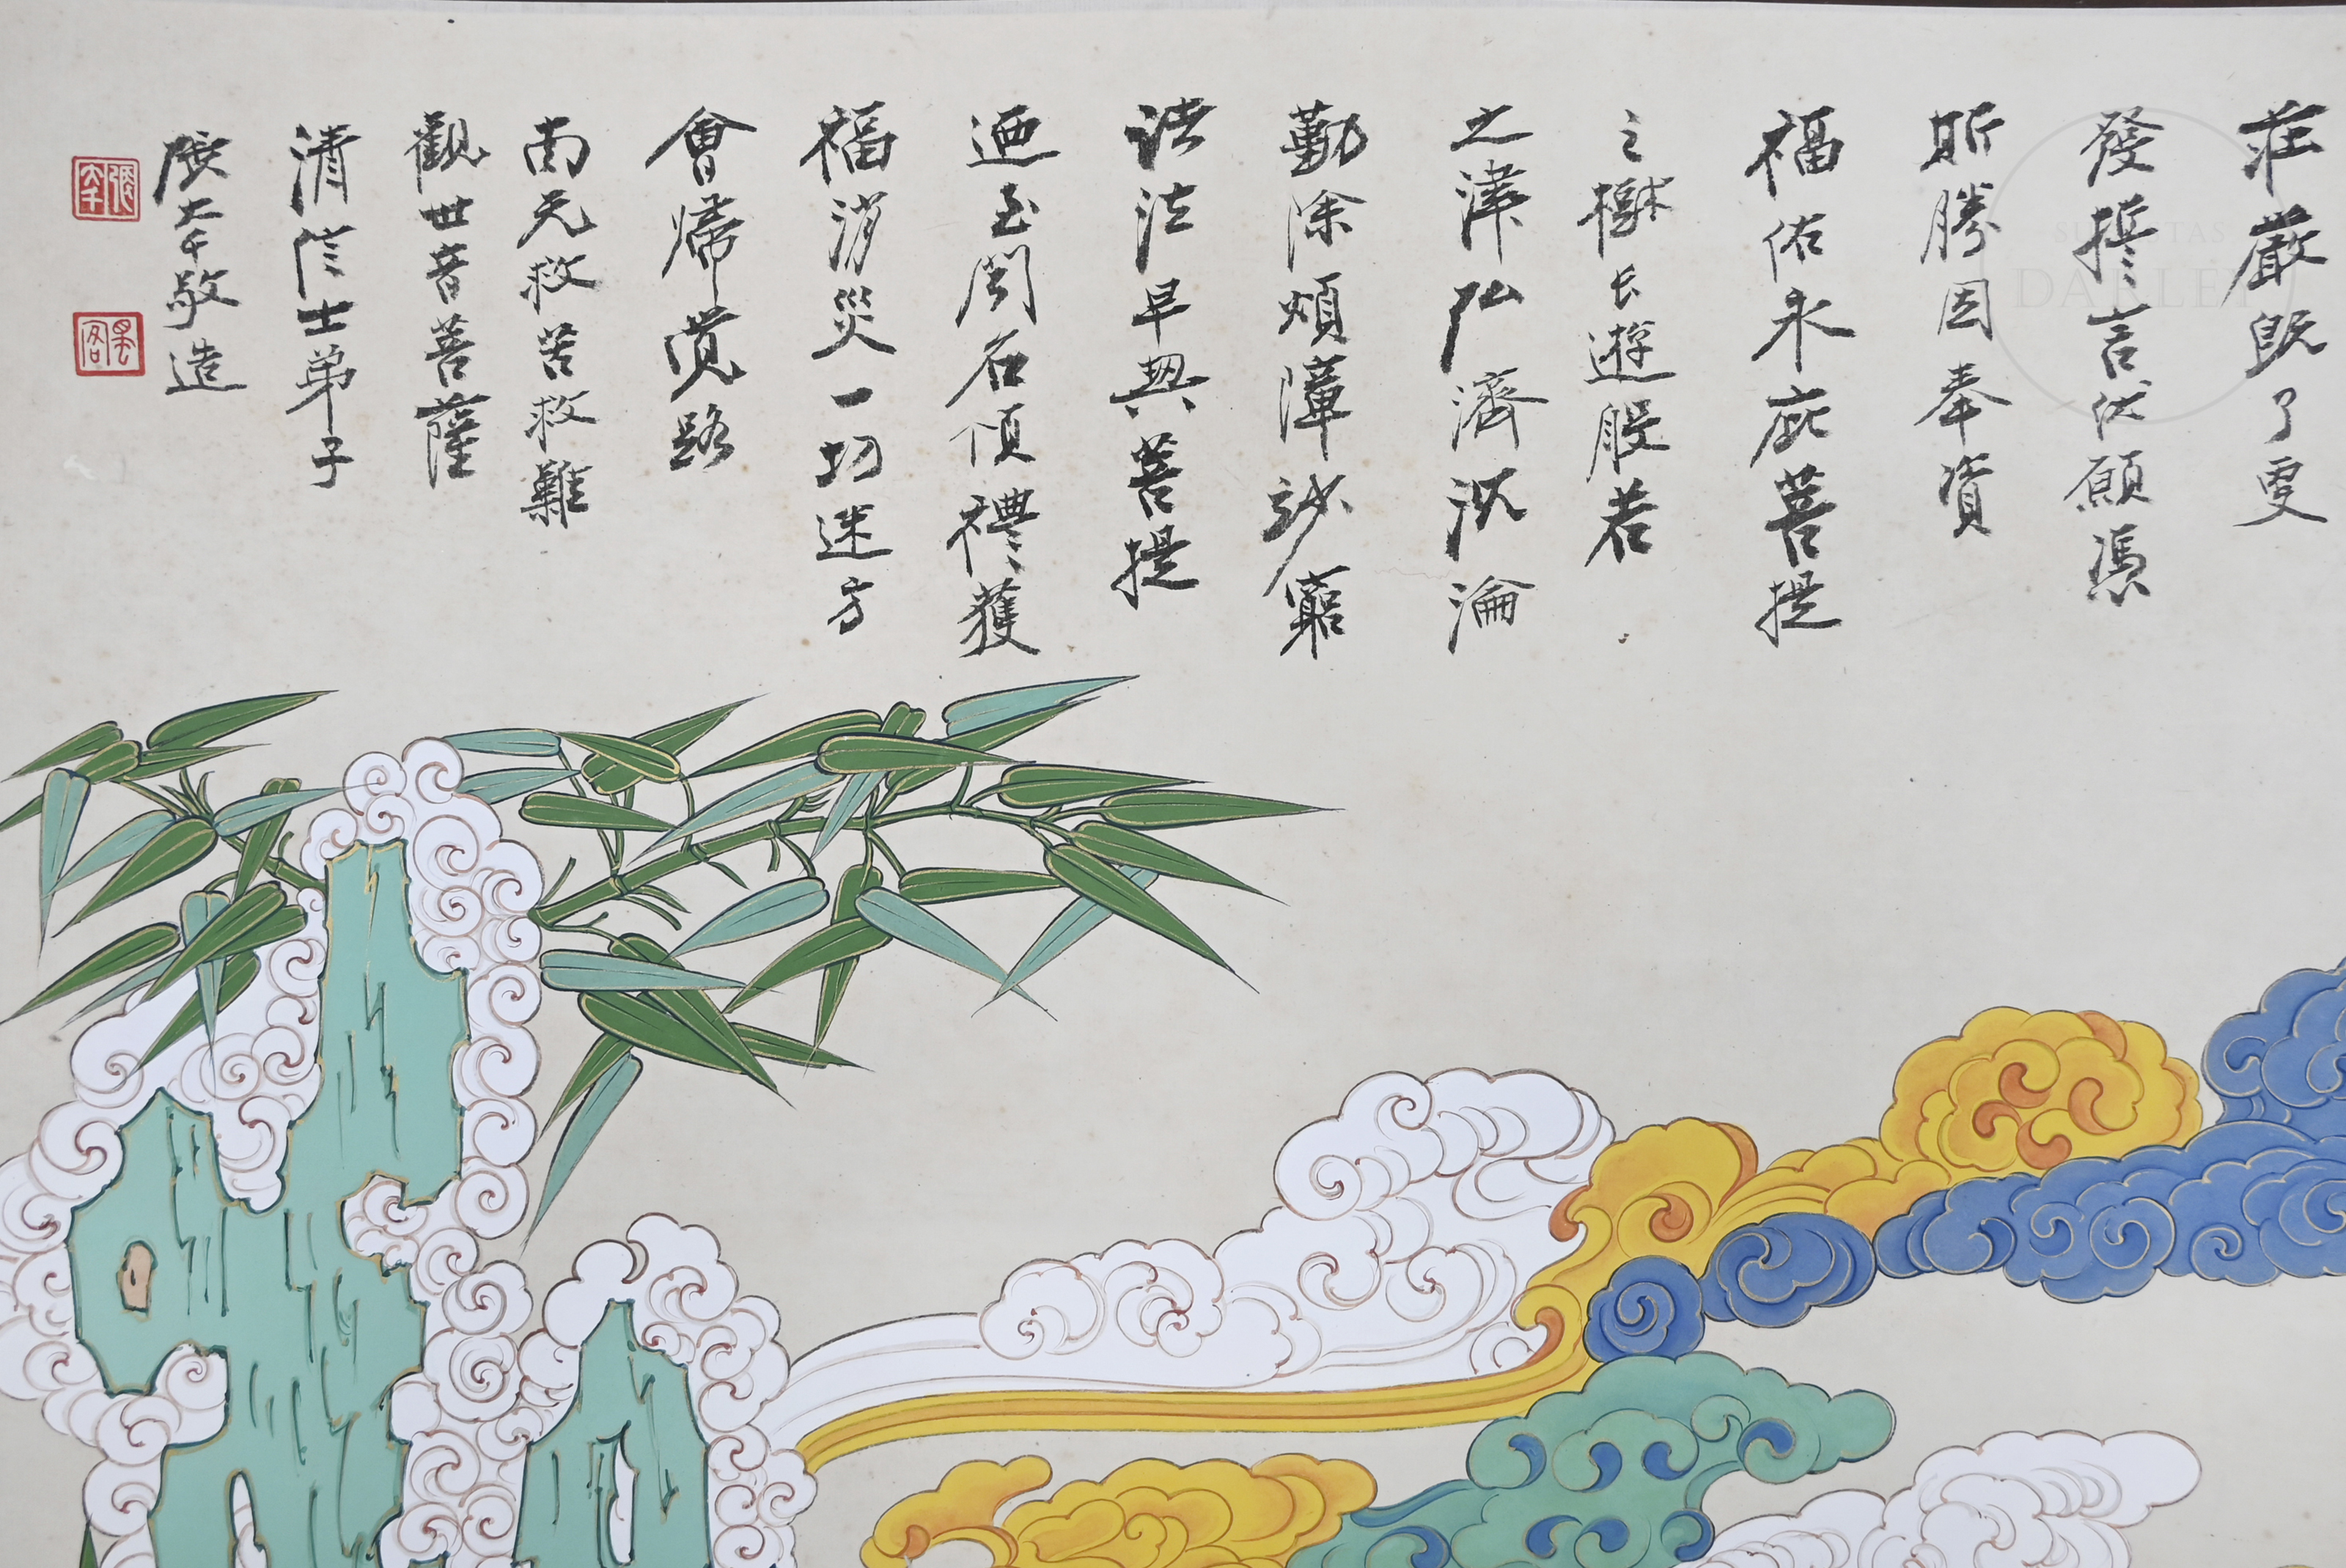 莊嚴既了更
發誓言伏願憑
斯勝因奉資
福佑永庇菩提
之樹長遊般若
之津弘濟沉淪
勤除煩障妙窮
諸法早與菩提
迺至聞名傾禮獲
福消災一切迷方
會歸覺路
南无救苦救難
觀世音菩薩
清信士弟子
張大千敬造
張
大千
墨客
DARLEY